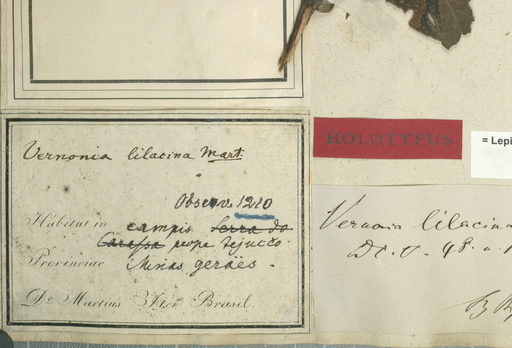 Vernonia lilacina Mart.
Observ. 1210
Habitat in campis Serra do
Carassa prope Tejucco.
Provinciae Minas geraës.
Dr. Martius Iter Brasil.
HOLOTYPUS
= Lepi
Vernonia lilacina
DC. V. 48. n.